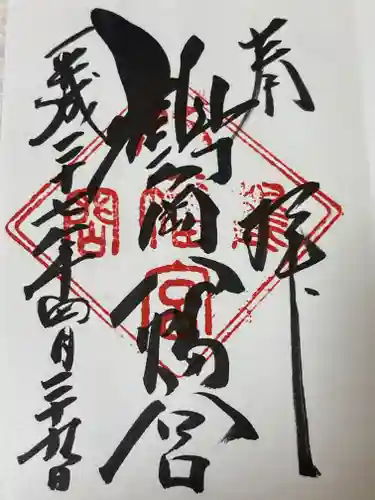 奉拝
鶴岡八幡宮
平成二十七年四月二十九日